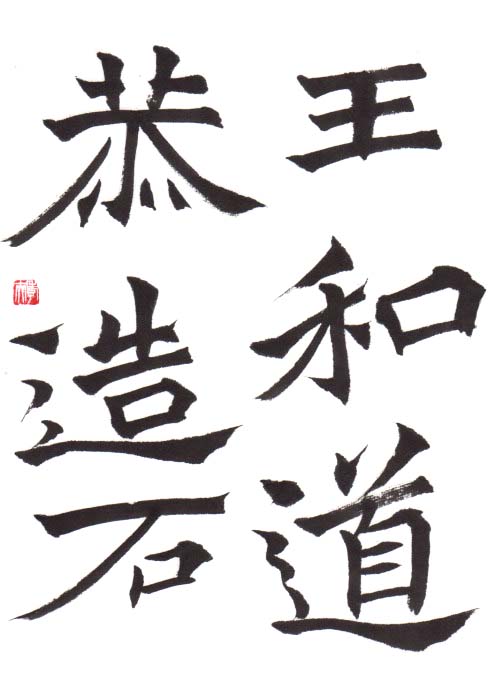 王和道
恭造石